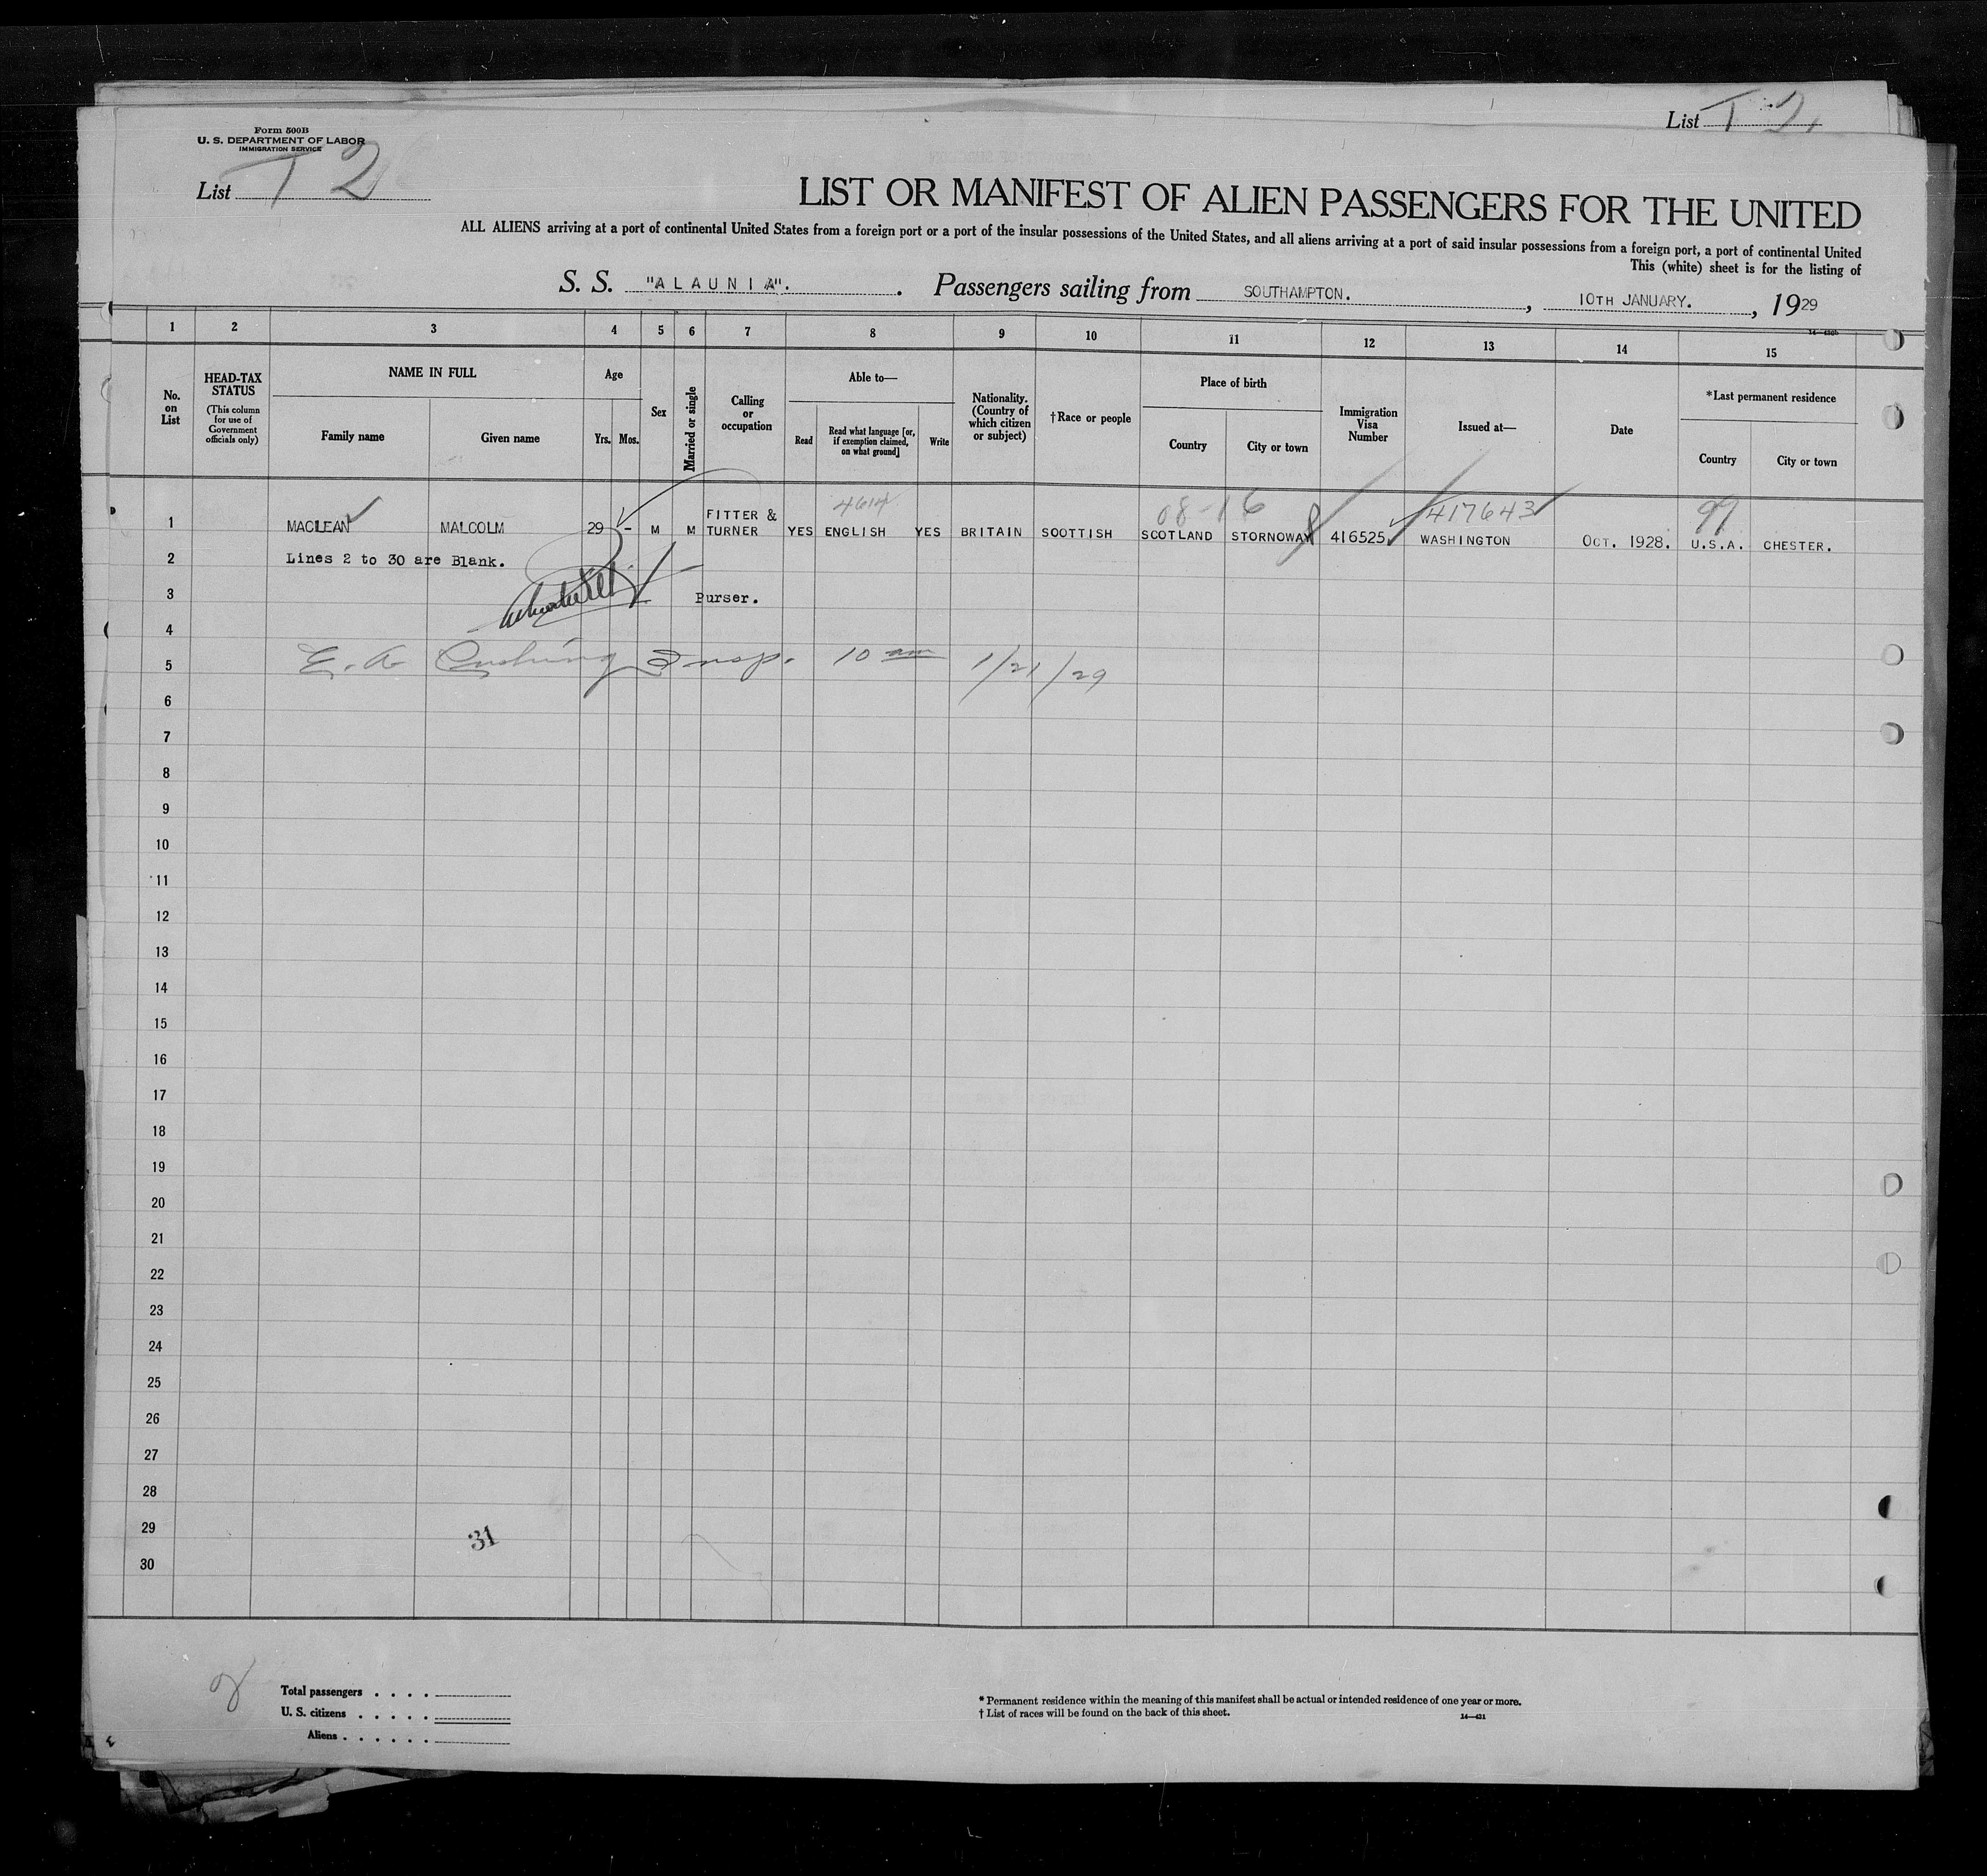 List T 2
Form 500B
U. S. DEPARTMENT OF LABOR
IMMIGRATION SERVICE
List T 2
LIST OR MANIFEST OF ALIEN PASSENGERS FOR THE UNITED
ALL ALIENS arriving at a port of continental United States from a foreign port or a port of the insular possessions of the United States, and all aliens arriving at a port of said insular possessions from a foreign port, a port of continental United
This (white) sheet is for the listing of
S. S. "ALAUNIA". Passengers sailing from SOUTHAMPTON. , 10TH JANUARY. , 1929
14—430b
1 2 3 4 5 6 7 8 9 10 11 12 13 14 15
No. on List
HEAD-TAX STATUS
(This column for use of Government officials only)
NAME IN FULL
Family name Given name
Age
Yrs. Mos.
Sex
Married or single
Calling or occupation
Able to—
Read
Read what language [or, if exemption claimed, on what ground]
Write
Nationality. (Country of which citizen or subject)
†Race or people
Place of birth
Country City or town
Immigration Visa Number
Issued at—
Date
*Last permanent residence
Country City or town
4614 08-16 417643 99
1 MACLEAN MALCOLM 29 - M M FITTER & TURNER YES ENGLISH YES BRITAIN SOOTTISH SCOTLAND STORNOWAY 416525 WASHINGTON OCT. 1928. U.S.A. CHESTER.
2 Lines 2 to 30 are Blank.
3 Purser.
4
5 E. A. Cushing Insp. 10 am 1/21/29
6
7
8
9
10
11
12
13
14
15
16
17
18
19
20
21
22
23
24
25
26
27
28
29 31
30
Total passengers . . . .
U. S. citizens . . . . .
Aliens . . . . . .
* Permanent residence within the meaning of this manifest shall be actual or intended residence of one year or more.
† List of races will be found on the back of this sheet.
14—431